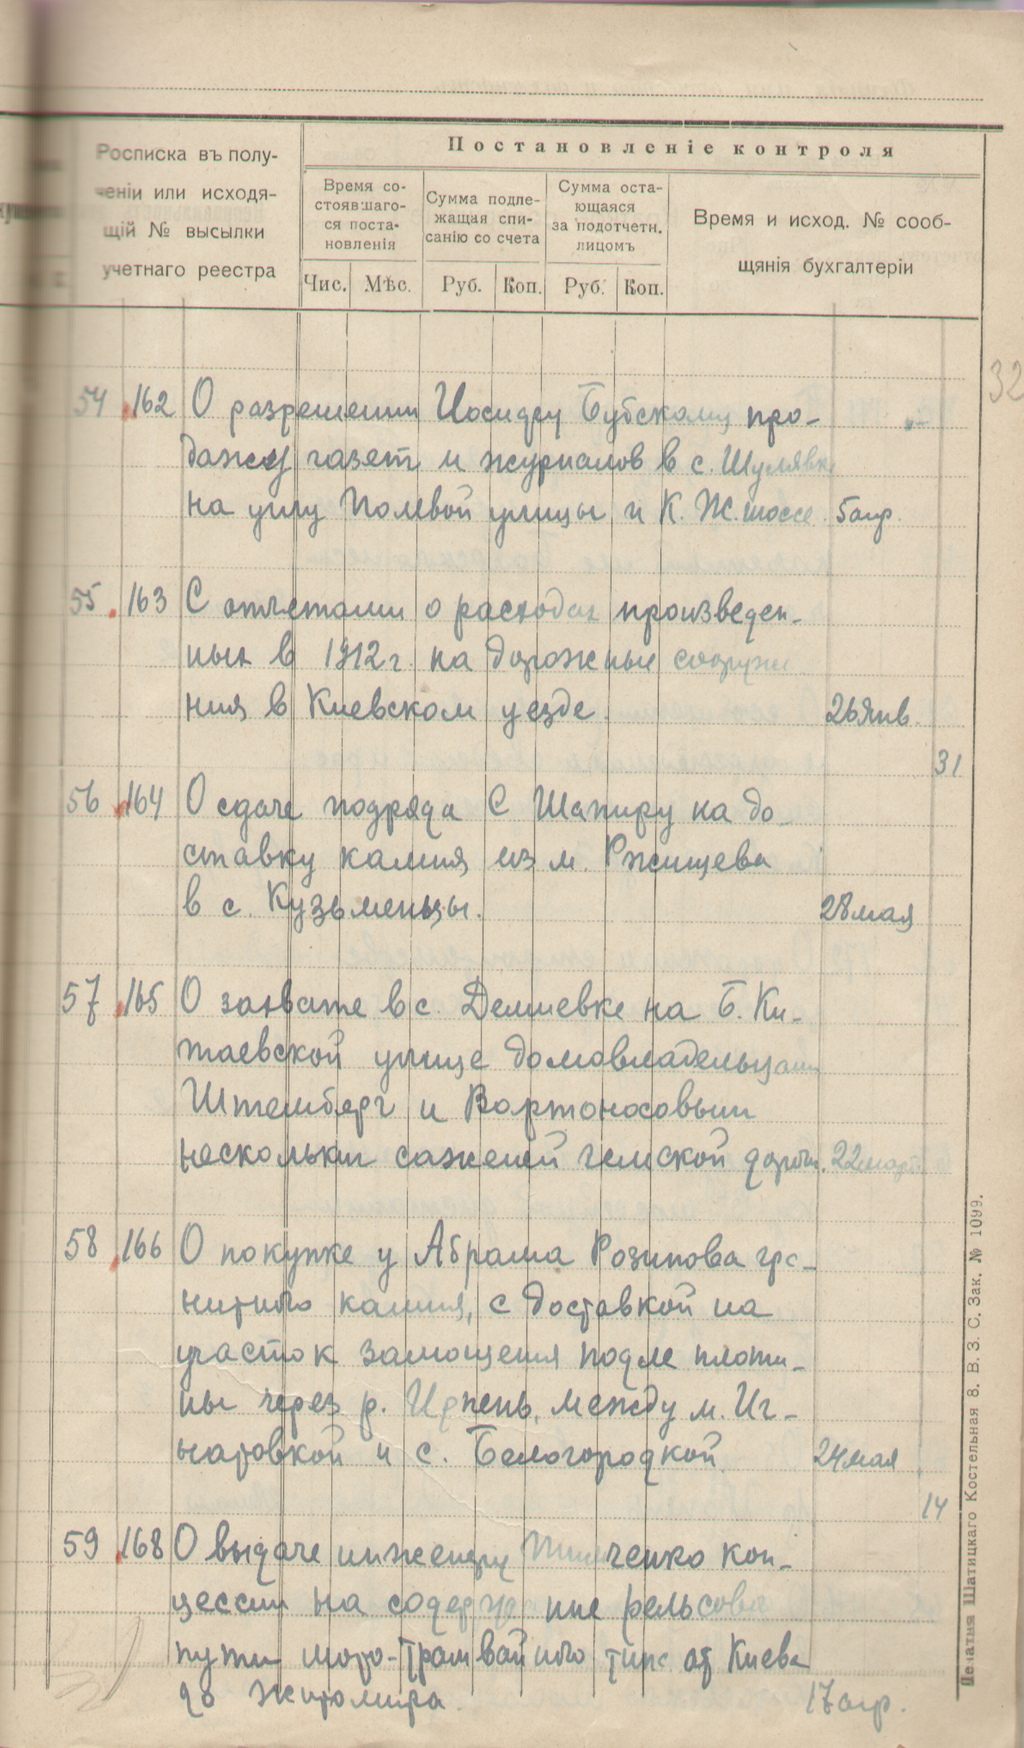 Росписка въ полу-
ченіи или исходя-
щій № высылки
учетнаго реестра
Постановленіе контроля
Время со-
стоявшаго-
ся поста-
новленія
Сумма подле-
жащая спи-
санію со счета
Сумма оста-
ющаяся
за подотчетн.
лицомъ
Время и исход. № сооб-
щянія бухгалтеріи
Чис. Мѣс. Руб. Коп. Руб. Коп.
32
54 162 О разрешении Иосифу Бубскому про-
дажу газет и журналов в с. Шулявке
на углу Полевой улицы и К. Ж. шоссе. 5 апр.
55 163 С отчетами о расходах произведен-
ных в 1912 г. на дорожные сооруже
ния в Киевском уезде. 26 янв.
31
56 164 О сдаче подряда С Шапиру на до-
ставку камня из м. Ржищева
в с. Кузьменцы. 28 мая
57 165 О захвате в с. Демиевке на Б. Ки-
таевской улице домовладельцами
Штемберг и Вортоносовым
несколько саженей земской дороги. 22 март
58 166 О покупке у Абрама Розинова гра-
нитного камня, с доставкой на
участок замощения подле плоти-
ны через р. Ирпень, между м. Иг-
натовкой и с. Белогородкой. 24 мая
14
59 168 О выдаче инженеру ченко кон-
цессии на содержание рельсового
пути мото-трамвайного типа от Киева
до Житомира. 17 апр.
Печатня Шатицкаго Костельная 8. В. З. С. Зак. № 1099.